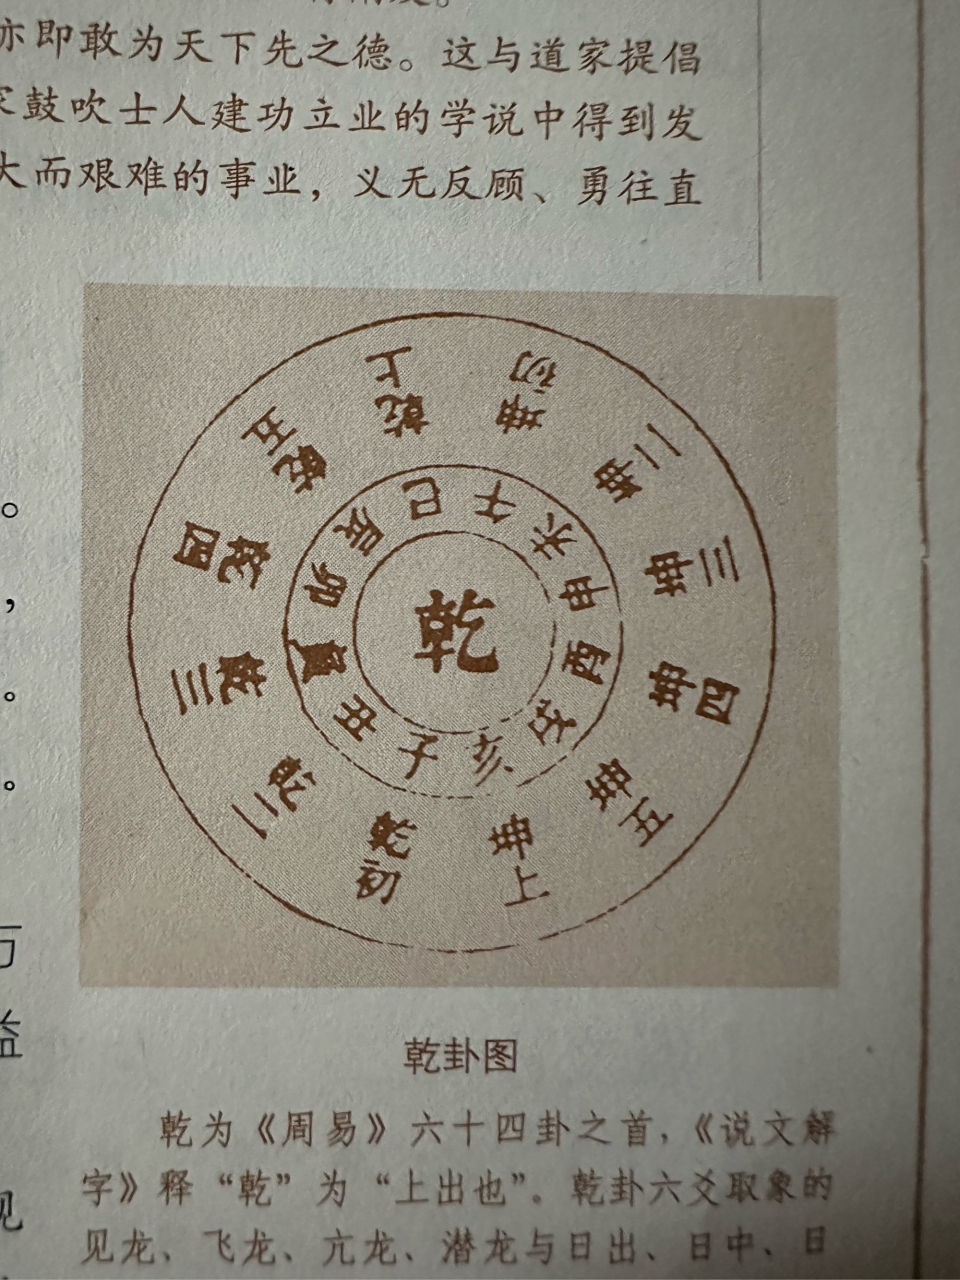 亦即敢为天下先之德。这与道家提倡
家鼓吹士人建功立业的学说中得到发
大而艰难的事业，义无反顾、勇往直
。
，
。
。
万
益
现
乾
子
丑
寅
卯
辰
巳
午
未
申
酉
戌
亥
乾初
乾二
乾三
乾四
乾五
乾上
坤初
坤二
坤三
坤四
坤五
坤上
乾卦图
乾为《周易》六十四卦之首，《说文解
字》释“乾”为“上出也”。乾卦六爻取象的
见龙、飞龙、亢龙、潜龙与日出、日中、日